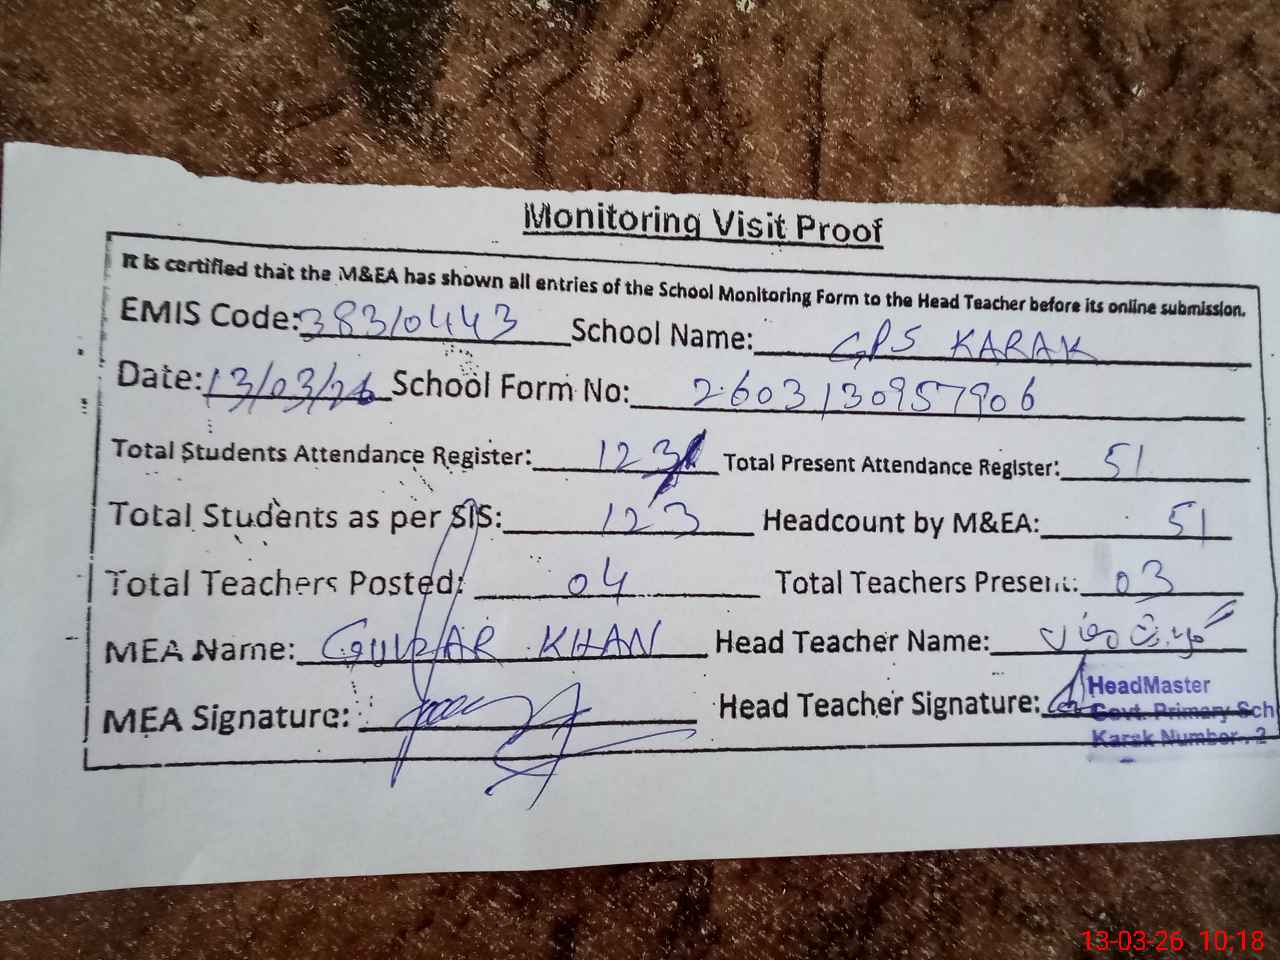 Monitoring Visit Proof
It is certified that the M&EA has shown all entries of the School Monitoring Form to the Head Teacher before its online submission.
EMIS Code: 38310443 School Name: GPS KARAK
Date: 13/03/26 School Form No: 2603130957906
Total Students Attendance Register: 123 Total Present Attendance Register: 51
Total Students as per SIS: 123 Headcount by M&EA: 51
Total Teachers Posted: 04 Total Teachers Present: 03
MEA Name: GULZAR KHAN Head Teacher Name:
MEA Signature: Head Teacher Signature:
HeadMaster
Govt. Primary Sch
Karak Number. 2
13-03-26 10:18